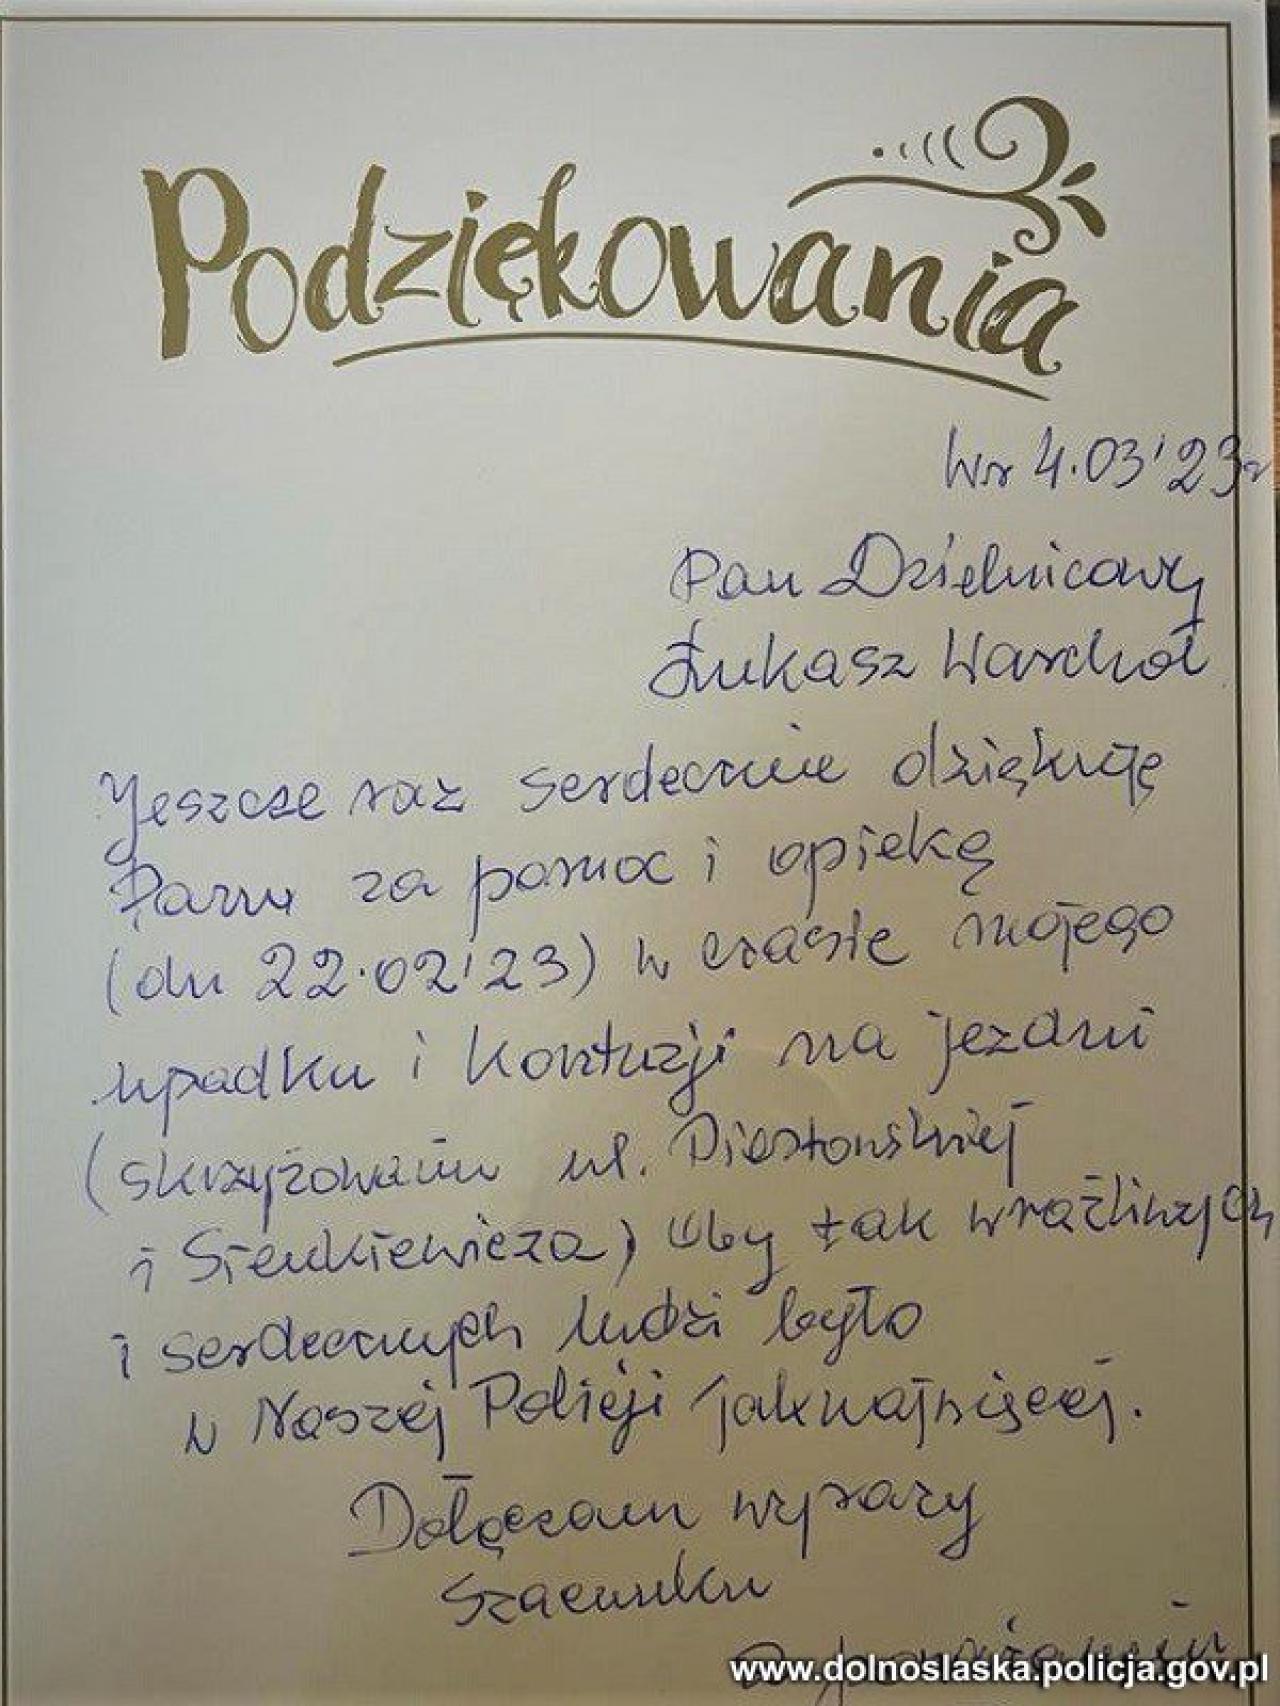 Podziękowania
Wr 4.03'23r
Pan Dzielnicowy
Łukasz Warchoł
Jeszcze raz serdecznie dziękuję
Panu za pomoc i opiekę
(dn 22.02'23) w czasie mojego
upadku i kontuzji na jezdni
(skrzyżowaniu ul.
i Sienkiewicza) Oby tak wrażliwych
i serdecznych ludzi było
w Naszej Policji jaknajwięcej.
Dołączam wyrazy
szacunku
www.dolnoslaska.policja.gov.pl